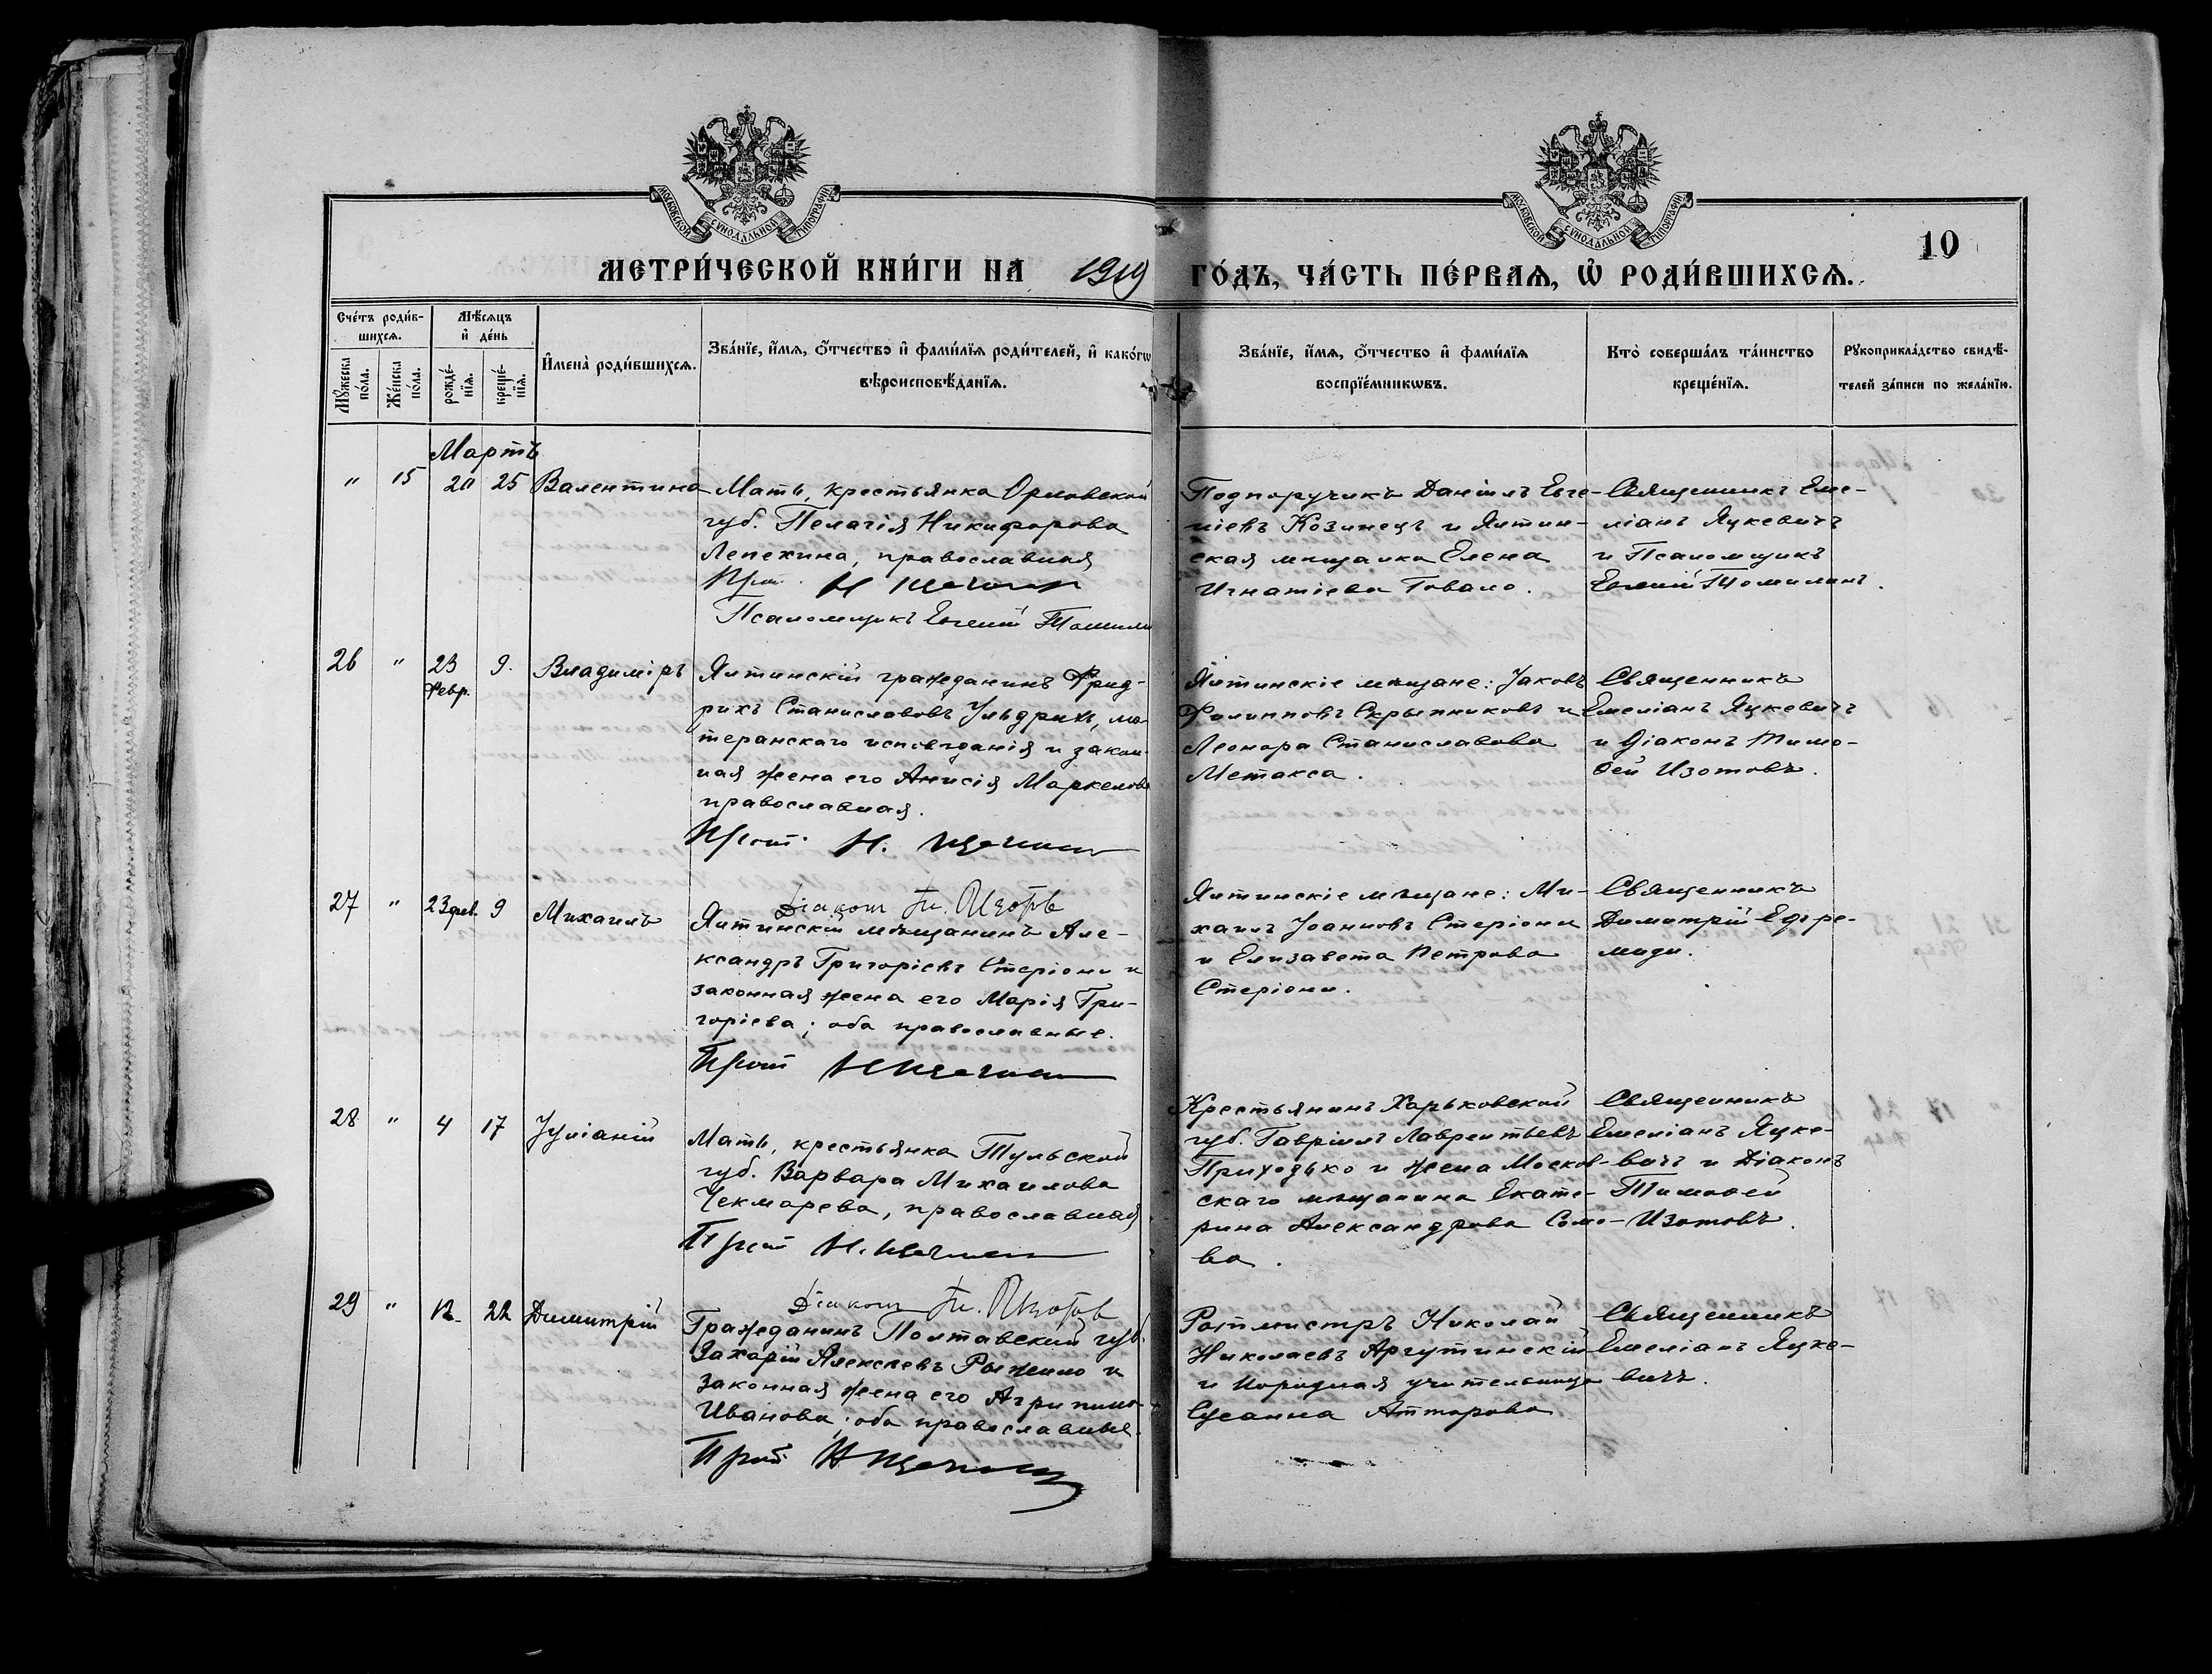 МОСКОВСКОЙ СѴНОДАЛЬНОЙ ТИПОГРАФІИ
МОСКОВСКОЙ СѴНОДАЛЬНОЙ ТИПОГРАФІИ
10
МЕТРИ́ЧЕСКОЙ КНИ́ГИ НА 1919 ГО́ДЪ, ЧА́СТЬ ПЕ́РВАѦ, Ѡ҆ РОДИ́ВШИХСѦ.
Сче́тъ роди́в-
шихсѧ.
Мꙋ́жеска
по́ла.
Же́нска
по́ла.
Мѣ́сѧцъ
и҆ де́нь
рожде́-
нїѧ.
креще́-
нїѧ.
И҆мена̀ роди́вшихсѧ.
Зва́нїе, и҆́мѧ, ѻ҆́тчество и҆ фами́лїѧ роди́телей, и҆ како́гѡ
вѣроисповѣ́данїѧ.
Зва́нїе, и҆́мѧ, ѻ҆́тчество и҆ фами́лїѧ
воспрїе́мникѡвъ.
Кто̀ соверша́лъ та́инство
креще́нїѧ.
Рꙋкоприкла́дство свидѣ́-
телей за́писи по жела́нїю.
Мартъ
" 15 20 25 Валентина
Мать, крестьянка Орловской
губ. Пелагія Никифорова
Лепехина, православная
Прот. Н.
Псаломщикъ Евгеній Томили
Подпоручикъ Даніилъ Евге-
ніевъ Козинецъ и Ялтин-
ская мѣщанка Елена
Игнатіева Товало.
Священникъ Еме-
ліанъ Яцкевичъ
и Псаломщикъ
Евгеній Томилинъ.
26 " 23 Февр. 9. Владиміръ
Ялтинскій гражданинъ Фрид-
рихъ Станиславовъ Ульдрихъ, лю-
теранскаго исповѣданія и закон-
ная жена его Анисія Маркелова
православная.
Прот. Н.
Діаконъ Ти. Изотовъ
Ялтинскіе мѣщане: Іаковъ
Филипповъ Скрыпниковъ и
Леонора Станиславова
Метакса.
Священникъ
Емеліанъ Яцкевичъ
и Діаконъ Тимо-
ѳей Изотовъ.
27 " 23 фев. 9 Михаилъ
Ялтинскій мѣщанинъ Але-
ксандръ Григорьевъ Стеріони и
законная жена его Марія Гри-
горіева; оба православные.
Прот. Н.
Ялтинскіе мѣщане: Ми-
хаилъ Іоанновъ Стеріони
и Елизавета Петрова
Стеріони.
Священникъ
Димитрій Ефре-
миди.
28 " 4 17 Іуліаній
Мать, крестьянка Тульской
губ. Варвара Михаилова
Чекмарева, православная
Прот. Н.
Діаконъ Ти. Изотовъ
Крестьянинъ Харьковской
губ. Гавріилъ Лаврентьевъ
Приходько и жена Москов-
скаго мѣщанина Екате-
рина Александрова Сомо-
ва.
Священникъ
Емеліанъ Яцке-
вичъ и Діаконъ
Тимоѳей
Изотовъ.
29 " 12 22 Димитрій
Гражданинъ Полтавской губ.
Захарій Алексѣевъ Рыженко и
законная жена его Агрипина
Иванова; оба православные.
Прот. Н.
Ротмистръ Николай
Николаевъ Аргутинскій
и Народная учительница
Сусанна Аттарова
Священникъ
Емеліанъ Яцке-
вичъ.